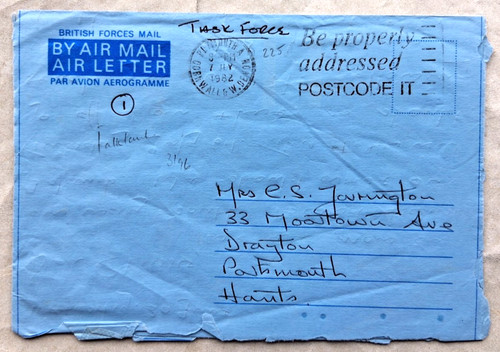 BRITISH FORCES MAIL
BY AIR MAIL
AIR LETTER
PAR AVION AEROGRAMME
TASK FORCE
225
1982
Be properly
addressed
POSTCODE IT
1
Falklands
3/96
Mrs C.S. Tarrington
33 Moortown Ave
Drayton
Portsmouth
Hants.